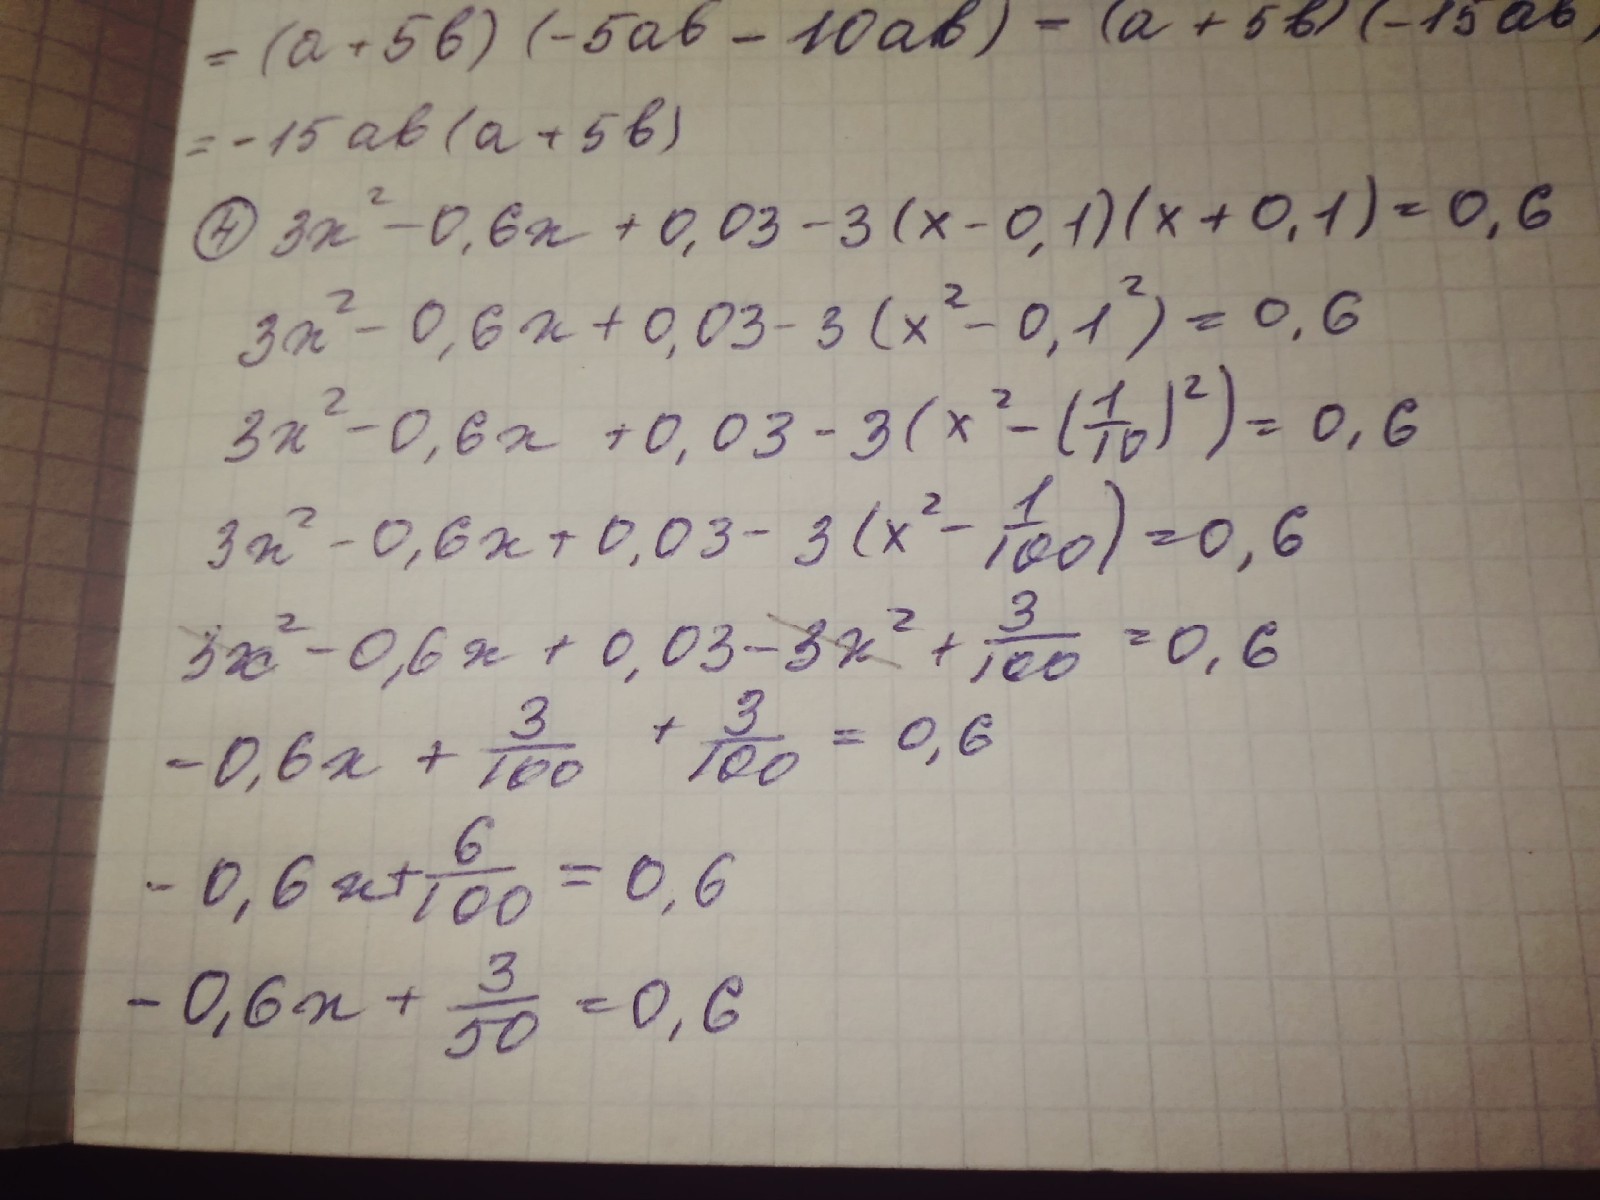 = (a + 5b) (-5ab - 10ab) = (a + 5b) (-15ab)
= -15ab (a + 5b)
④ 3x² - 0,6x + 0,03 - 3(x - 0,1)(x + 0,1) = 0,6
3x² - 0,6x + 0,03 - 3(x² - 0,1²) = 0,6
3x² - 0,6x + 0,03 - 3(x² - (1/10)²) = 0,6
3x² - 0,6x + 0,03 - 3(x² - 1/100) = 0,6
3x² - 0,6x + 0,03 - 3x² + 3/100 = 0,6
-0,6x + 3/100 + 3/100 = 0,6
-0,6x + 6/100 = 0,6
-0,6x + 3/50 = 0,6